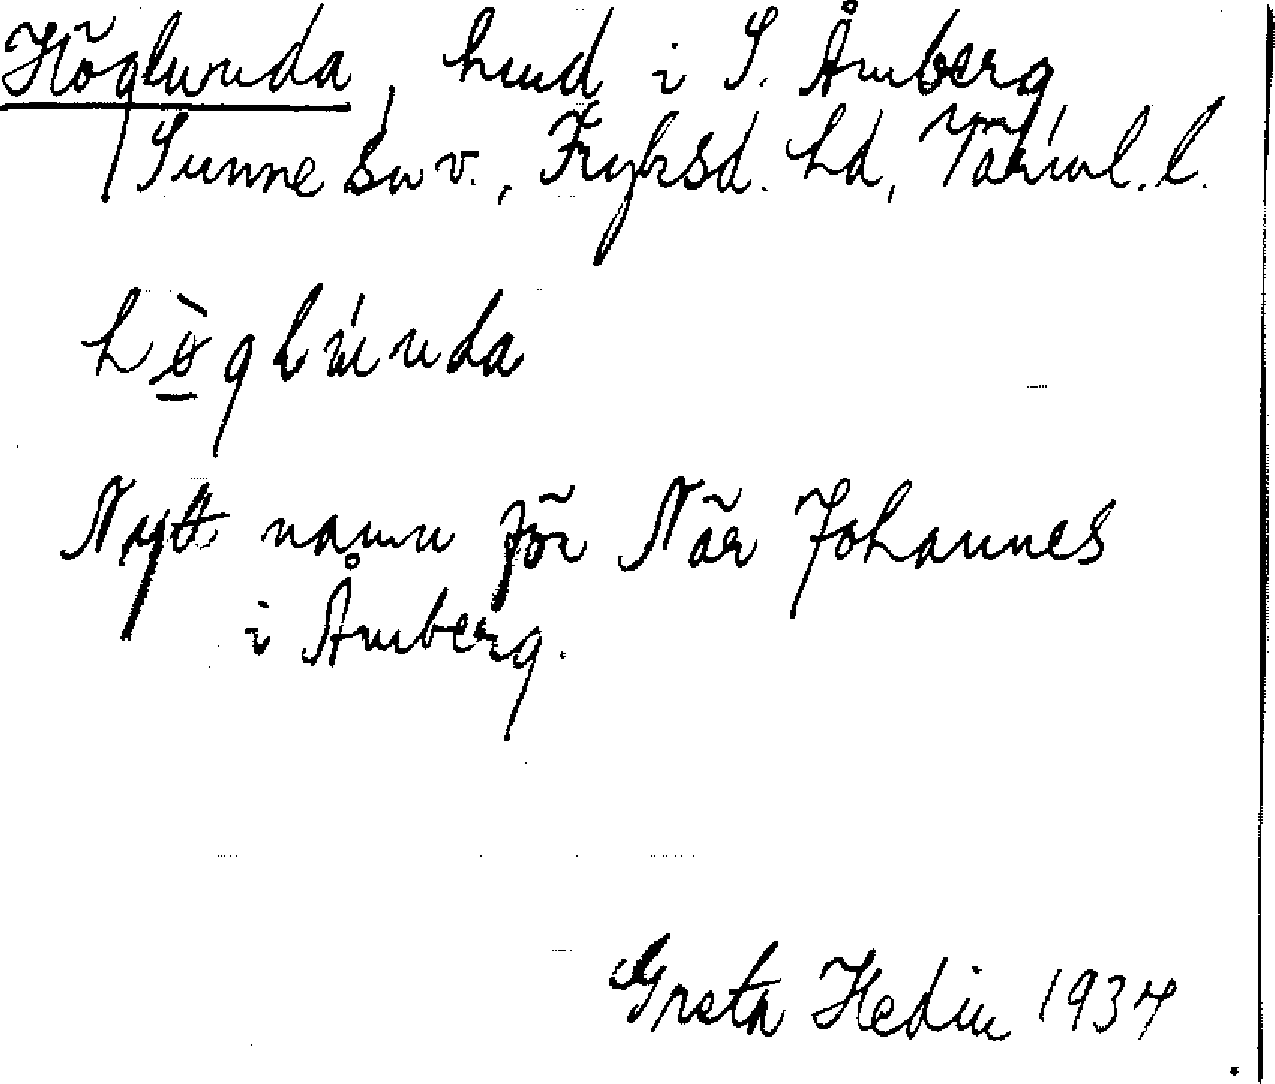 Höglunda, hmd i S. Åmberg
Sunne sn v., Fryksd. hd, Värml. l.
hö̀glúnda
Nytt namn för När Johannes
i Åmberg.
Greta Hedin 1934